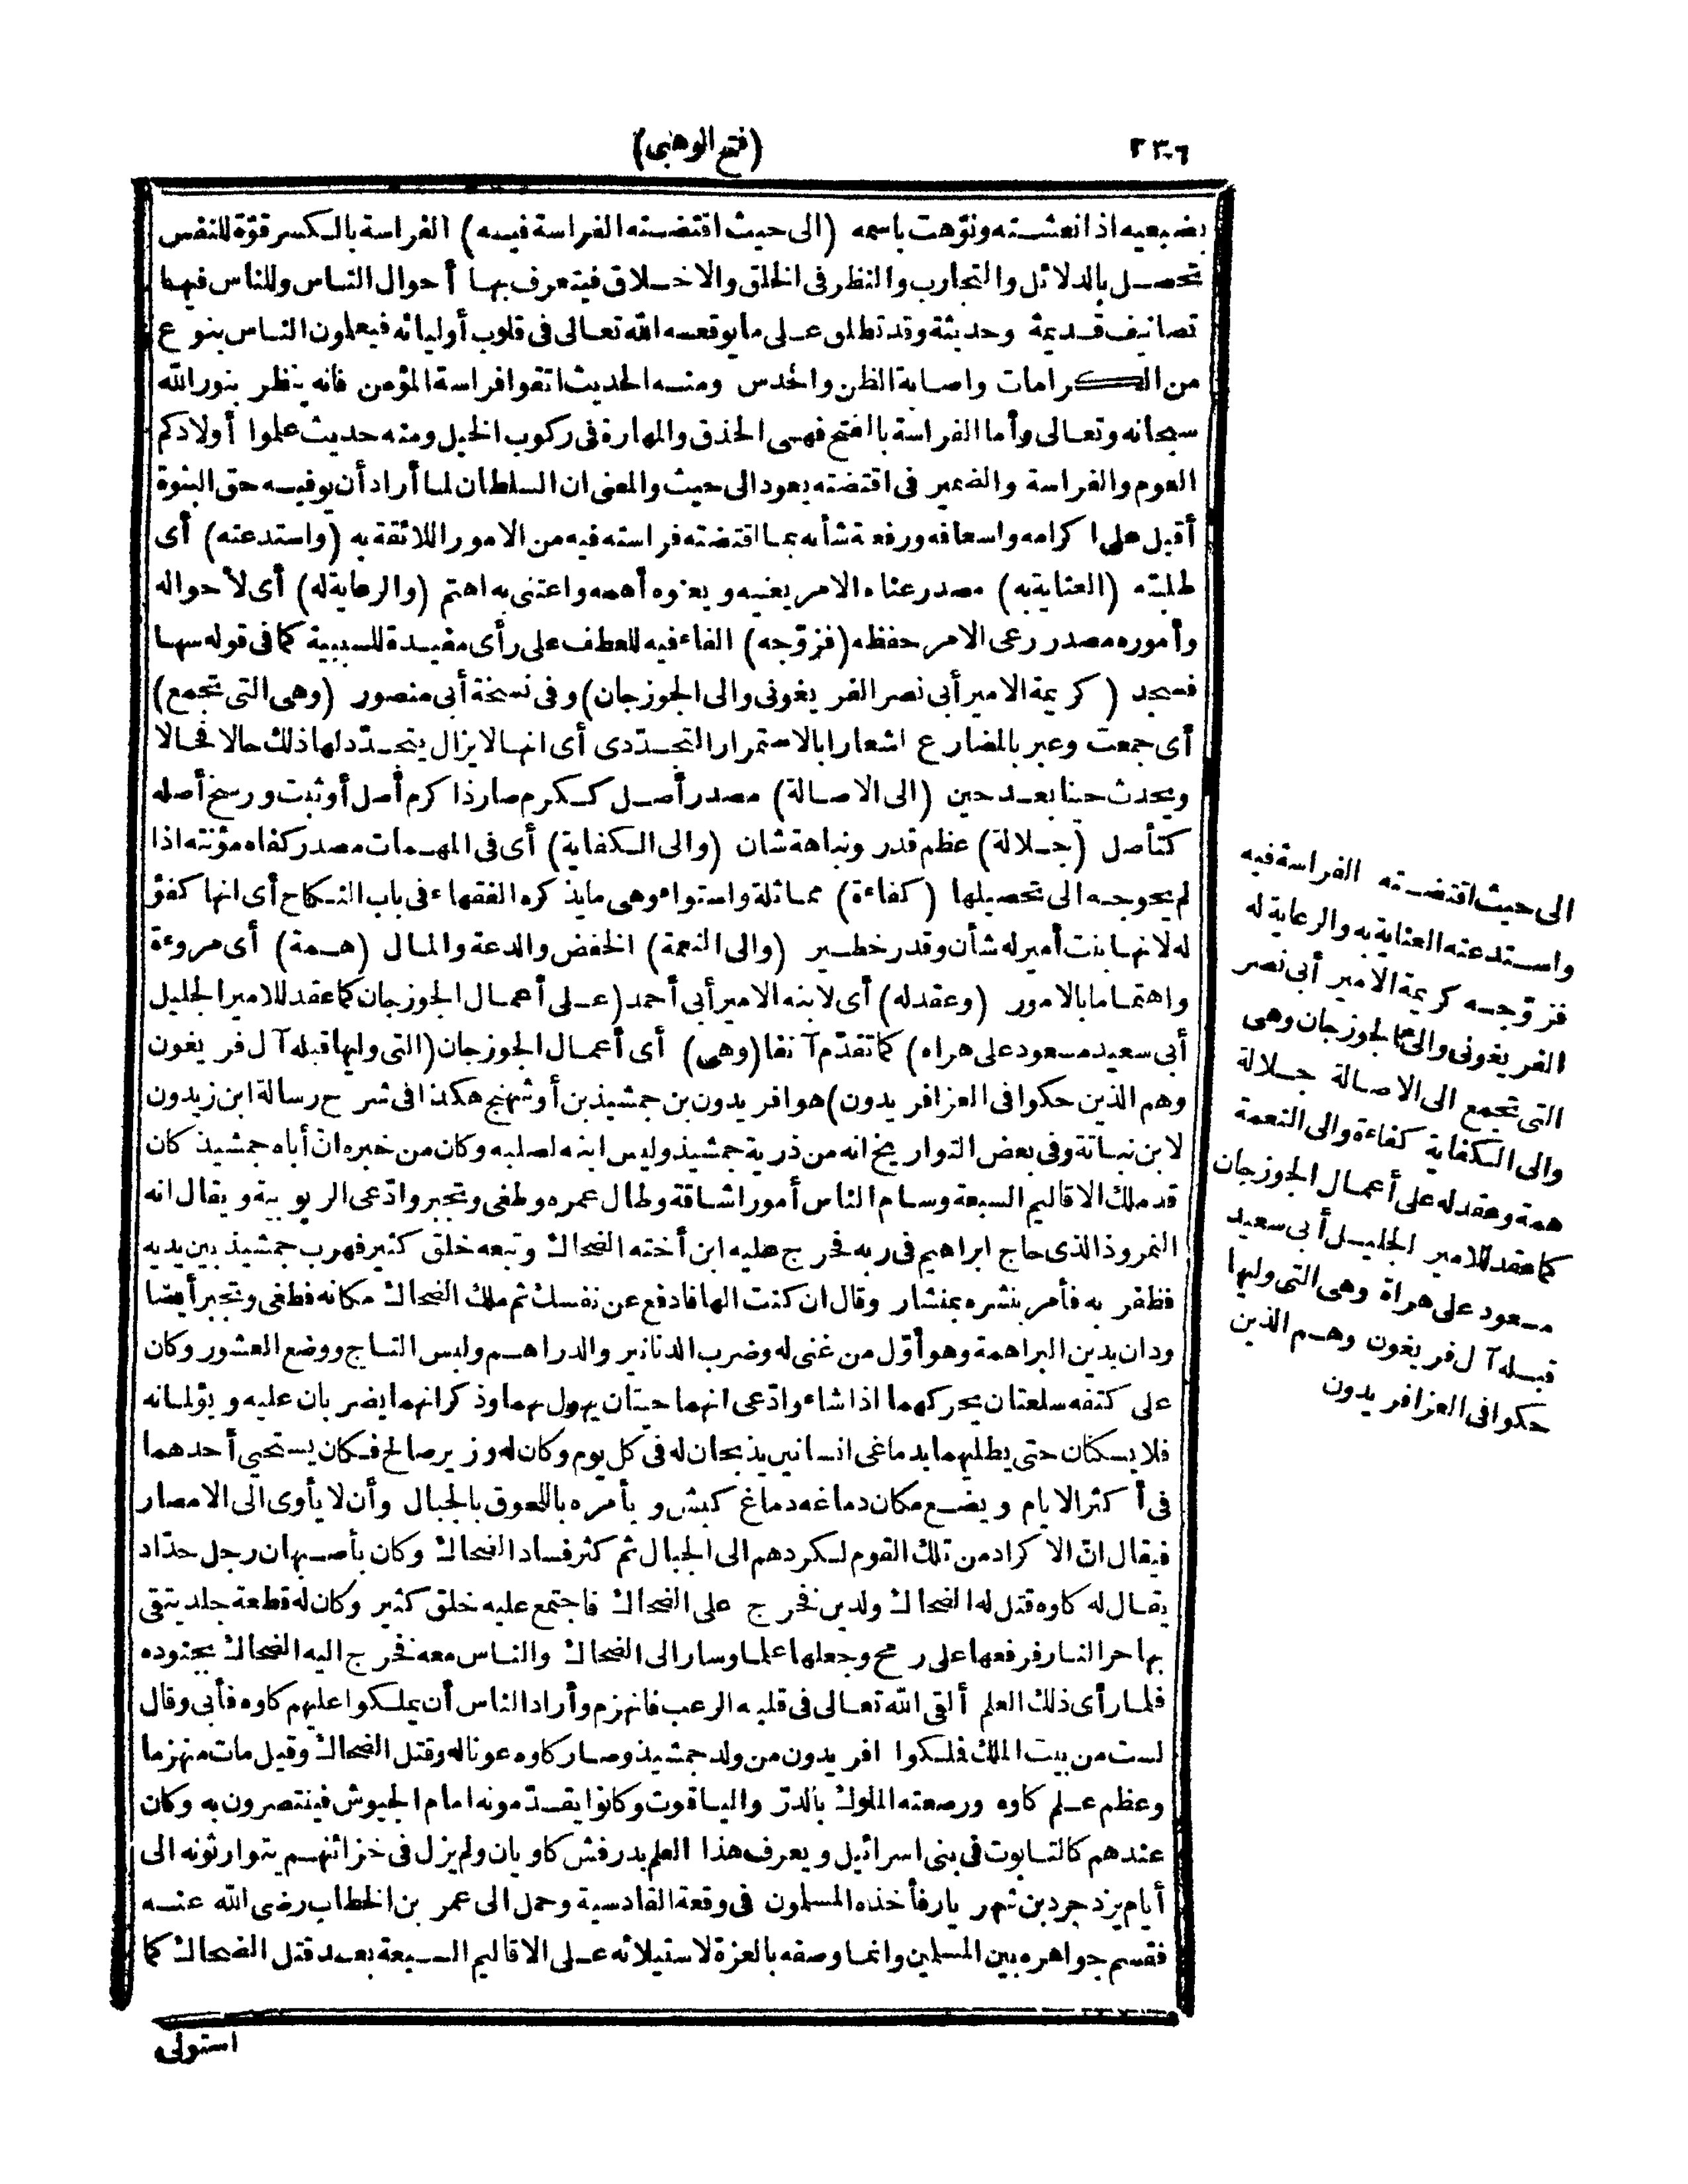 ٢٣٠٦
(فتح الوهبى)
بضبعيه اذا نعشته ونوّهت باسمه (الى حيث اقتضته الفراسة فيه) الفراسة بالكسر قوّة للنفس
تحصل بالدلائل والتجارب والنظر فى الخلق والاخلاق فيتعرف بها أحوال الناس وللناس فيها
تصانيف قديمة وحديثة وقد تطلق على ما يوقعه الله تعالى فى قلوب أوليائه فيعلمون الناس بنوع
من الكرامات واصابة الظن والحدس ومنه الحديث اتقوا فراسة المؤمن فانه ينظر بنور الله
سبحانه وتعالى وأما الفراسة بالفتح فهى الحذق والمهارة فى ركوب الخيل ومنه حديث علموا أولادكم
العوم والفراسة والضمير فى اقتضته يعود الى حيث والمعنى ان السلطان لما أراد أن يوفيه حق البنوة
أقبل على اكرامه واسعافه ورفعة شأنه بما اقتضته فراسته فيه من الامور اللائقة به (واستدعته) أى
طلبته (العناية به) مصدر عناه الامر يعنيه ويعنوه أهمه واعتنى به اهتم (والرعاية له) أى لأحواله
وأموره مصدر رعى الامر حفظه (فزوّجه) الفاء فيه للعطف على رأى مفيدة للسببية كما فى قوله سها
فسجد (كريمة الامير أبى نصر الفريغونى والى الجوزجان) وفى نسخة أبى منصور (وهى التى تجمع)
أى جمعت وعبر بالمضارع اشعارا بالاستمرار التجدّدى أى انها لا يزال يتجدّد لها ذلك حالا فحالا
ويحدث حينا بعد حين (الى الاصالة) مصدر أصل ككرم صار ذا كرم أصل أو ثبت ورسخ أصله
كتأصل (جلالة) عظم قدر ونباهة شان (والى الكفاية) أى فى المهمات مصدر كفاه مؤنته اذا
لم يحوجه الى تحصيلها (كفاءة) مماثلة واستواء وهى ما يذكره الفقهاء فى باب النكاح أى انها كفؤ
له لانها بنت أمير له شأن وقدر خطير (والى النعمة) الخفض والدعة والمال (همة) أى مروءة
واهتماما بالامور (وعقد له) أى لابنه الامير أبى أحمد (على أعمال الجوزجان كما عقد للامير الجليل
أبى سعيد مسعود على هراه) كما تقدّم آنفا (وهى) أى أعمال الجوزجان (التى وليها قبله آل فريغون
وهم الذين حكوا فى العز افريدون) هو افريدون بن جمشيذ بن أوشهنج هكذا فى شرح رسالة ابن زيدون
لابن نباتة وفى بعض التواريخ انه من ذرية جمشيذ وليس ابنه لصلبه وكان من خبره انّ أباه جمشيذ كان
قد ملك الاقاليم السبعة وسام الناس أمورا شاقة وطال عمره وطغى وتجبر وادّعى الربوبية ويقال انه
النمروذ الذى حاج ابراهيم فى ربه فخرج عليه ابن أخته الضحاك وتبعه خلق كثير فهرب جمشيذ بين يديه
فظفر به فأمر بنشره بمنشار وقال ان كنت الها فادفع عن نفسك ثم ملك الضحاك مكانه فطغى وتجبر أيضا
ودان بدين البراهمة وهو أوّل من غنى له وضرب الدنانير والدراهم ولبس التاج ووضع العشور وكان
على كتفه سلعتان يحركهما اذا شاء وادّعى انهما حيتان يهول بهما وذكر انهما يضربان عليه ويؤلمانه
فلا يسكنان حتى يطليهما بدماغى انسانين يذبحان له فى كل يوم وكان له وزير صالح فكان يستحيي أحدهما
فى أكثر الايام ويضع مكان دماغه دماغ كبش ويأمره باللحوق بالجبال وأن لا يأوى الى الامصار
فيقال انّ الاكراد من تلك القوم لكردهم الى الجبال ثم كثر فساد الضحاك وكان بأصبهان رجل حدّاد
يقال له كاوه قتل له الضحاك ولدين فخرج على الضحاك فاجتمع عليه خلق كثير وكان له قطعة جلد يتقى
بها حر النار فرفعها على رمح وجعلها علما وسار الى الضحاك والناس معه فخرج اليه الضحاك بجنوده
فلما رأى ذلك العلم ألقى الله تعالى فى قلبه الرعب فانهزم وأراد الناس أن يملكوا عليهم كاوه فأبى وقال
لست من بيت الملك فملكوا افريدون من ولد جمشيذ وصار كاوه عونا له وقتل الضحاك وقيل مات منهزما
وعظم علم كاوه ورصعته الملوك بالدرّ والياقوت وكانوا يقدّمونه امام الجيوش فينتصرون به وكان
عندهم كالتابوت فى بنى اسرائيل ويعرف هذا العلم بدرفش كاويان ولم يزل فى خزائنهم يتوارثونه الى
أيام يزدجرد بن شهريار فأخذه المسلمون فى وقعة القادسية وحمل الى عمر بن الخطاب رضى الله عنه
فقسم جواهره بين المسلمين وانما وصفه بالعزة لاستيلائه على الاقاليم السبعة بعد قتل الضحاك كما
استولى
الى حيث اقتضته الفراسة فيه
واستدعته العناية به والرعاية له
فزوّجه كريمة الامير أبى نصر
الفريغونى والى الجوزجان وهى
التى تجمع الى الاصالة جلالة
والى الكفاية كفاءة والى النعمة
همة وعقد له على أعمال الجوزجان
كما عقد للامير الجليل أبى سعيد
مسعود على هراة وهى التى وليها
قبله آل فريغون وهم الذين
حكوا فى العز افريدون